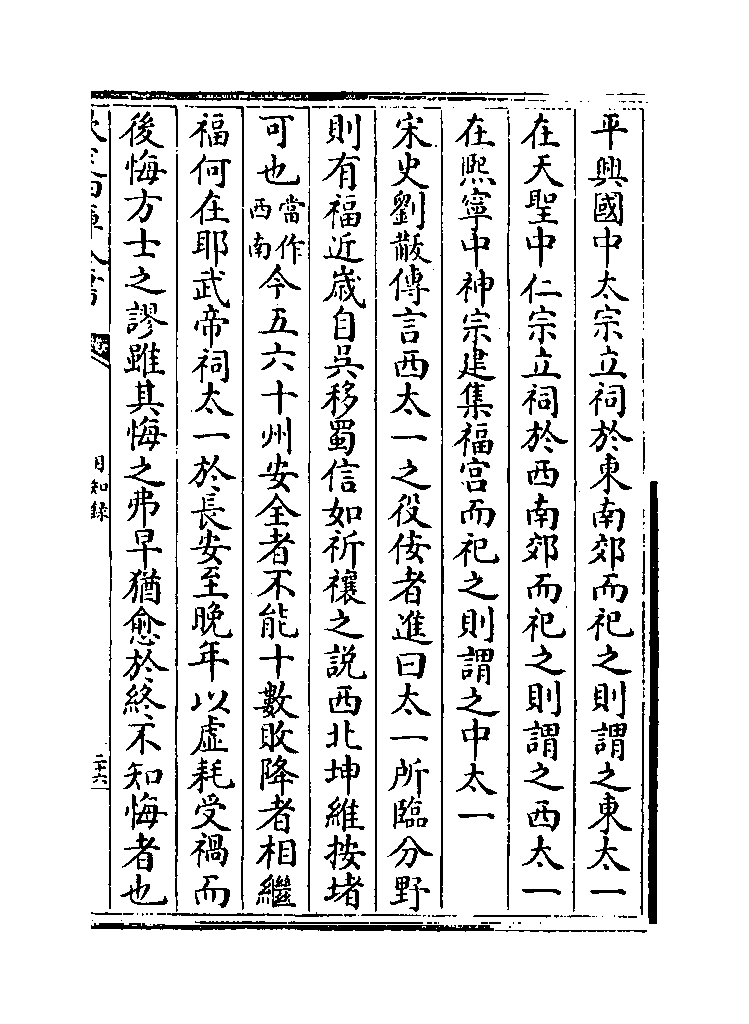 平興國中太宗立祠於東南郊而祀之則謂之東太一
在天聖中仁宗立祠於西南郊而祀之則謂之西太一
在熙寧中神宗建集福宫而祀之則謂之中太一
宋史劉黻傳言西太一之役佞者進曰太一所臨分野
則有福近嵗自吳移蜀信如祈禳之説西北坤維按堵
可也當作西南今五六十州安全者不能十數敗降者相繼
福何在耶武帝祠太一於長安至晚年以虚耗受禍而
後悔方士之謬雖其悔之弗早猶愈於終不知悔者也
日知錄
二十六